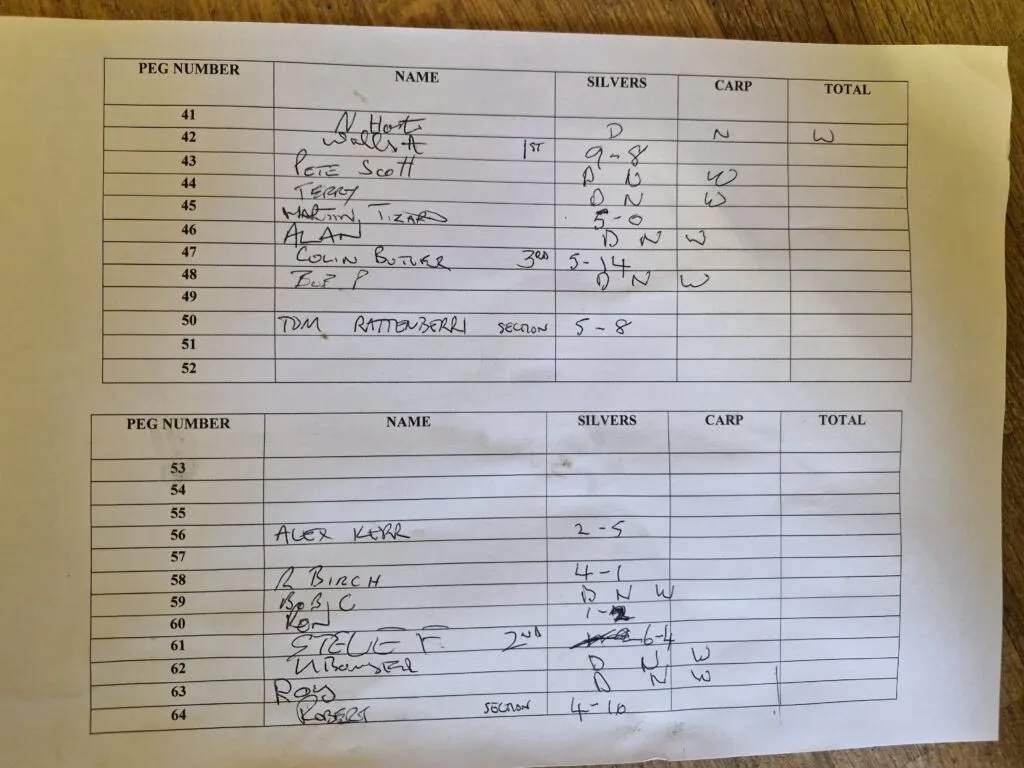 PEG NUMBER NAME SILVERS CARP TOTAL
41 N. Hart D N W
42 1ST 9-8
43 PETE SCOTT D N W
44 TERRY D N W
45 MARTIN TIZARD 5-0
46 ALAN D N W
47 COLIN BUTLER 3RD 5-14
48 BOB P D N W
49
50 TOM RATTENBERRI SECTION 5-8
51
52
PEG NUMBER NAME SILVERS CARP TOTAL
53
54
55
56 ALEX KERR 2-5
57
58 R BIRCH 4-1
59 BOB C D N W
60 RON 1-2
61 STEVE F 2ND 6-4
62 D N W
63 Roy D N W
64 ROBERT SECTION 4-10